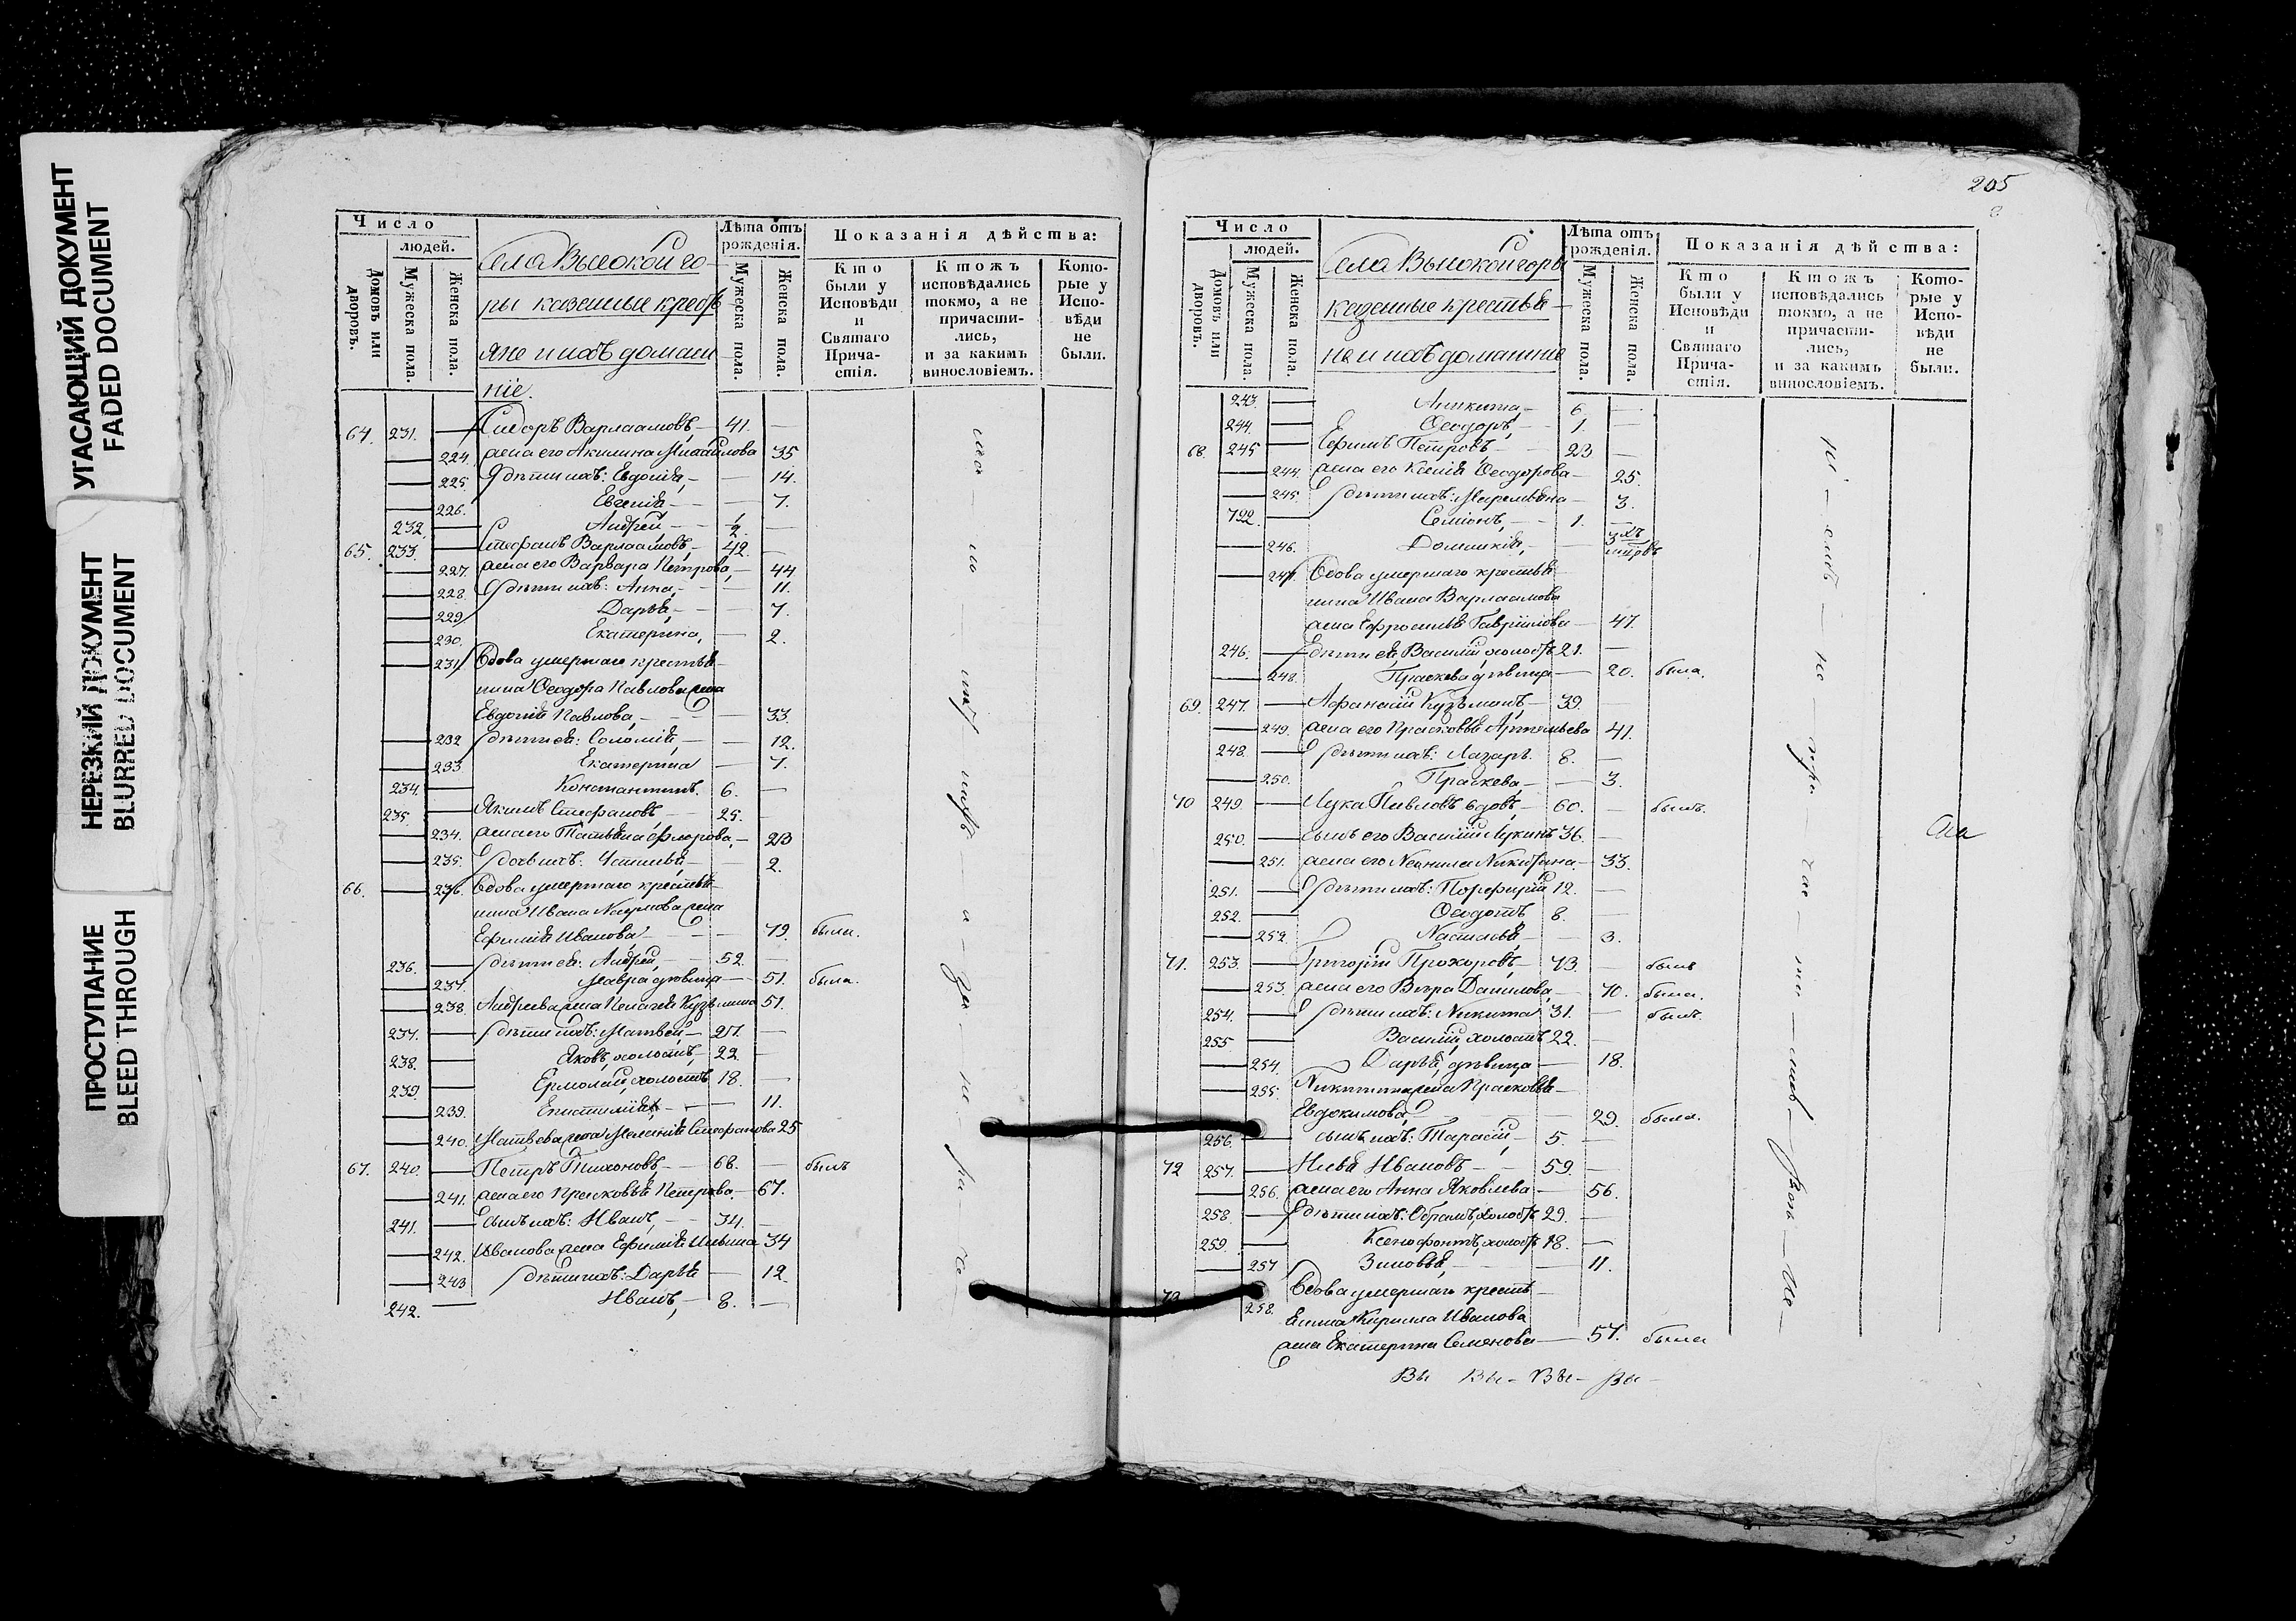 УГАСАЮЩИЙ ДОКУМЕНТ
FADED DOCUMENT
НЕРЕЗКИЙ ДОКУМЕНТ
BLURRED DOCUMENT
ПРОСТУПАНИЕ
BLEED THROUGH
Число
людей.
Домовъ или дворовъ.
Мужеска пола.
Женска пола.
Села Высокой го-
ры казенные кресть
яне и ихъ домаш
ніе.
Лѣта отъ рожденія.
Мужеска пола.
Женска пола.
Показанія дѣйства:
Кто были у Исповѣди и Святаго Прича-стія.
Ктожъ исповѣдались токмо, а не причасти-лись, и за какимъ винословіемъ.
Кото-рые у Испо-вѣди не были.
64. 231. Сидоръ Варлаамовъ, 41.
224. жена его Акилина Михайлова 35
225. Дѣти ихъ: Евдокія, 14.
226. Евгенія 7.
232. Андрей 1/2.
65. 233. Стефанъ Варлаамовъ, 42.
227. жена его Варвара Петрова, 44
228. Дѣти ихъ: Анна, 11.
229 Дарья, 7.
230. Екатерина, 2.
231 Вдова умершаго крестья-
нина Ѳеодора Павлова жена
Евдокія Павлова, 33.
232 дѣти ея: Соломія, 12.
233 Екатерина 7.
234. Константинъ. 6.
235. Якимъ Стефановъ, 25.
234. жена его Татьяна Флорова, 23
235. дочь ихъ: 2.
66. 236. Вдова умершаго крестья-
нина Ивана Наумова жена
Ефимія Иванова 79. была.
236. дѣти ея: Андрей, 52.
237. Мавра дѣвица 51. была.
238. Андреева жена Пелагея Кузьмина 51.
237. дѣти ихъ: Матвей, 27.
238. Яковъ, холостъ, 22.
239. Ермолай, холостъ 18.
239. Епистимія 11.
240. Матвеева жена Меланія Стефанова 25
67. 240. Петръ Тихоновъ, 68. былъ
241. жена его Прасковья Петрова, 67.
241. сынъ ихъ: Иванъ, 34.
242. Иванова жена Ефимія Ильина 34
243 дѣти ихъ: Дарья 12.
242. Иванъ, 8.
205
Число
людей.
Домовъ или дворовъ.
Мужеска пола.
Женска пола.
Села Высокой горы
казенные крестья-
не и ихъ домашніе
Лѣта отъ рожденія.
Мужеска пола.
Женска пола.
Показанія дѣйства:
Кто были у Исповѣди и Святаго Прича-стія.
Ктожъ исповѣдались токмо, а не причасти-лись, и за какимъ винословіемъ.
Кото-рые у Испо-вѣди не были.
243. Аникита, 6.
244. Ѳеодоръ, 1.
68 245 Ефимъ Петровъ, 23
244. жена его Ксенія Ѳеодорова 25.
245. дѣти ихъ: Маремьяна 3.
Семіонъ, 1.
246. Домникія, 3хъ
247. Вдова умершаго крестья-
нина Ивана Варлаамова
жена Ефросинья Гаврилова 47.
246. дѣти ея, Василій, холостъ 21.
248. Праскева дѣвица 20. была.
69. 247. Афанасій Кузьминъ, 39.
249. жена его Прасковья Артемьева 41.
248. дѣти ихъ: Лазарь. 8.
250. Праскева, 3.
70 249. Лука Павловъ вдовъ, 60. былъ.
250. сынъ его Василій Лукинъ 36.
251. жена его Неонила Никитина 33.
251. дѣти ихъ: Порфирій 12.
252. Ѳеодотъ 8.
252. Настасья, 3.
71. 253. Григорій Прохоровъ, 73. былъ
253. жена его Вѣра Данилова, 70. была.
254. дѣти ихъ: Никита 31. былъ.
255 Василій, холостъ 22.
254. Дарья, дѣвица 18.
255. Никитина жена Прасковья
Евдокимова, 29. была.
256. сынъ ихъ: Тарасій, 5.
72 257. Илья Ивановъ 59.
256. жена его Анна Яковлева 56.
258. дѣти ихъ: Обрамъ, холостъ 29.
259. Ксенофонтъ, холостъ 18.
257 Зиновья, 11.
73 258. Вдова умершаго кресть-
янина Кирилла Иванова
жена Екатерина Семенова 57. была